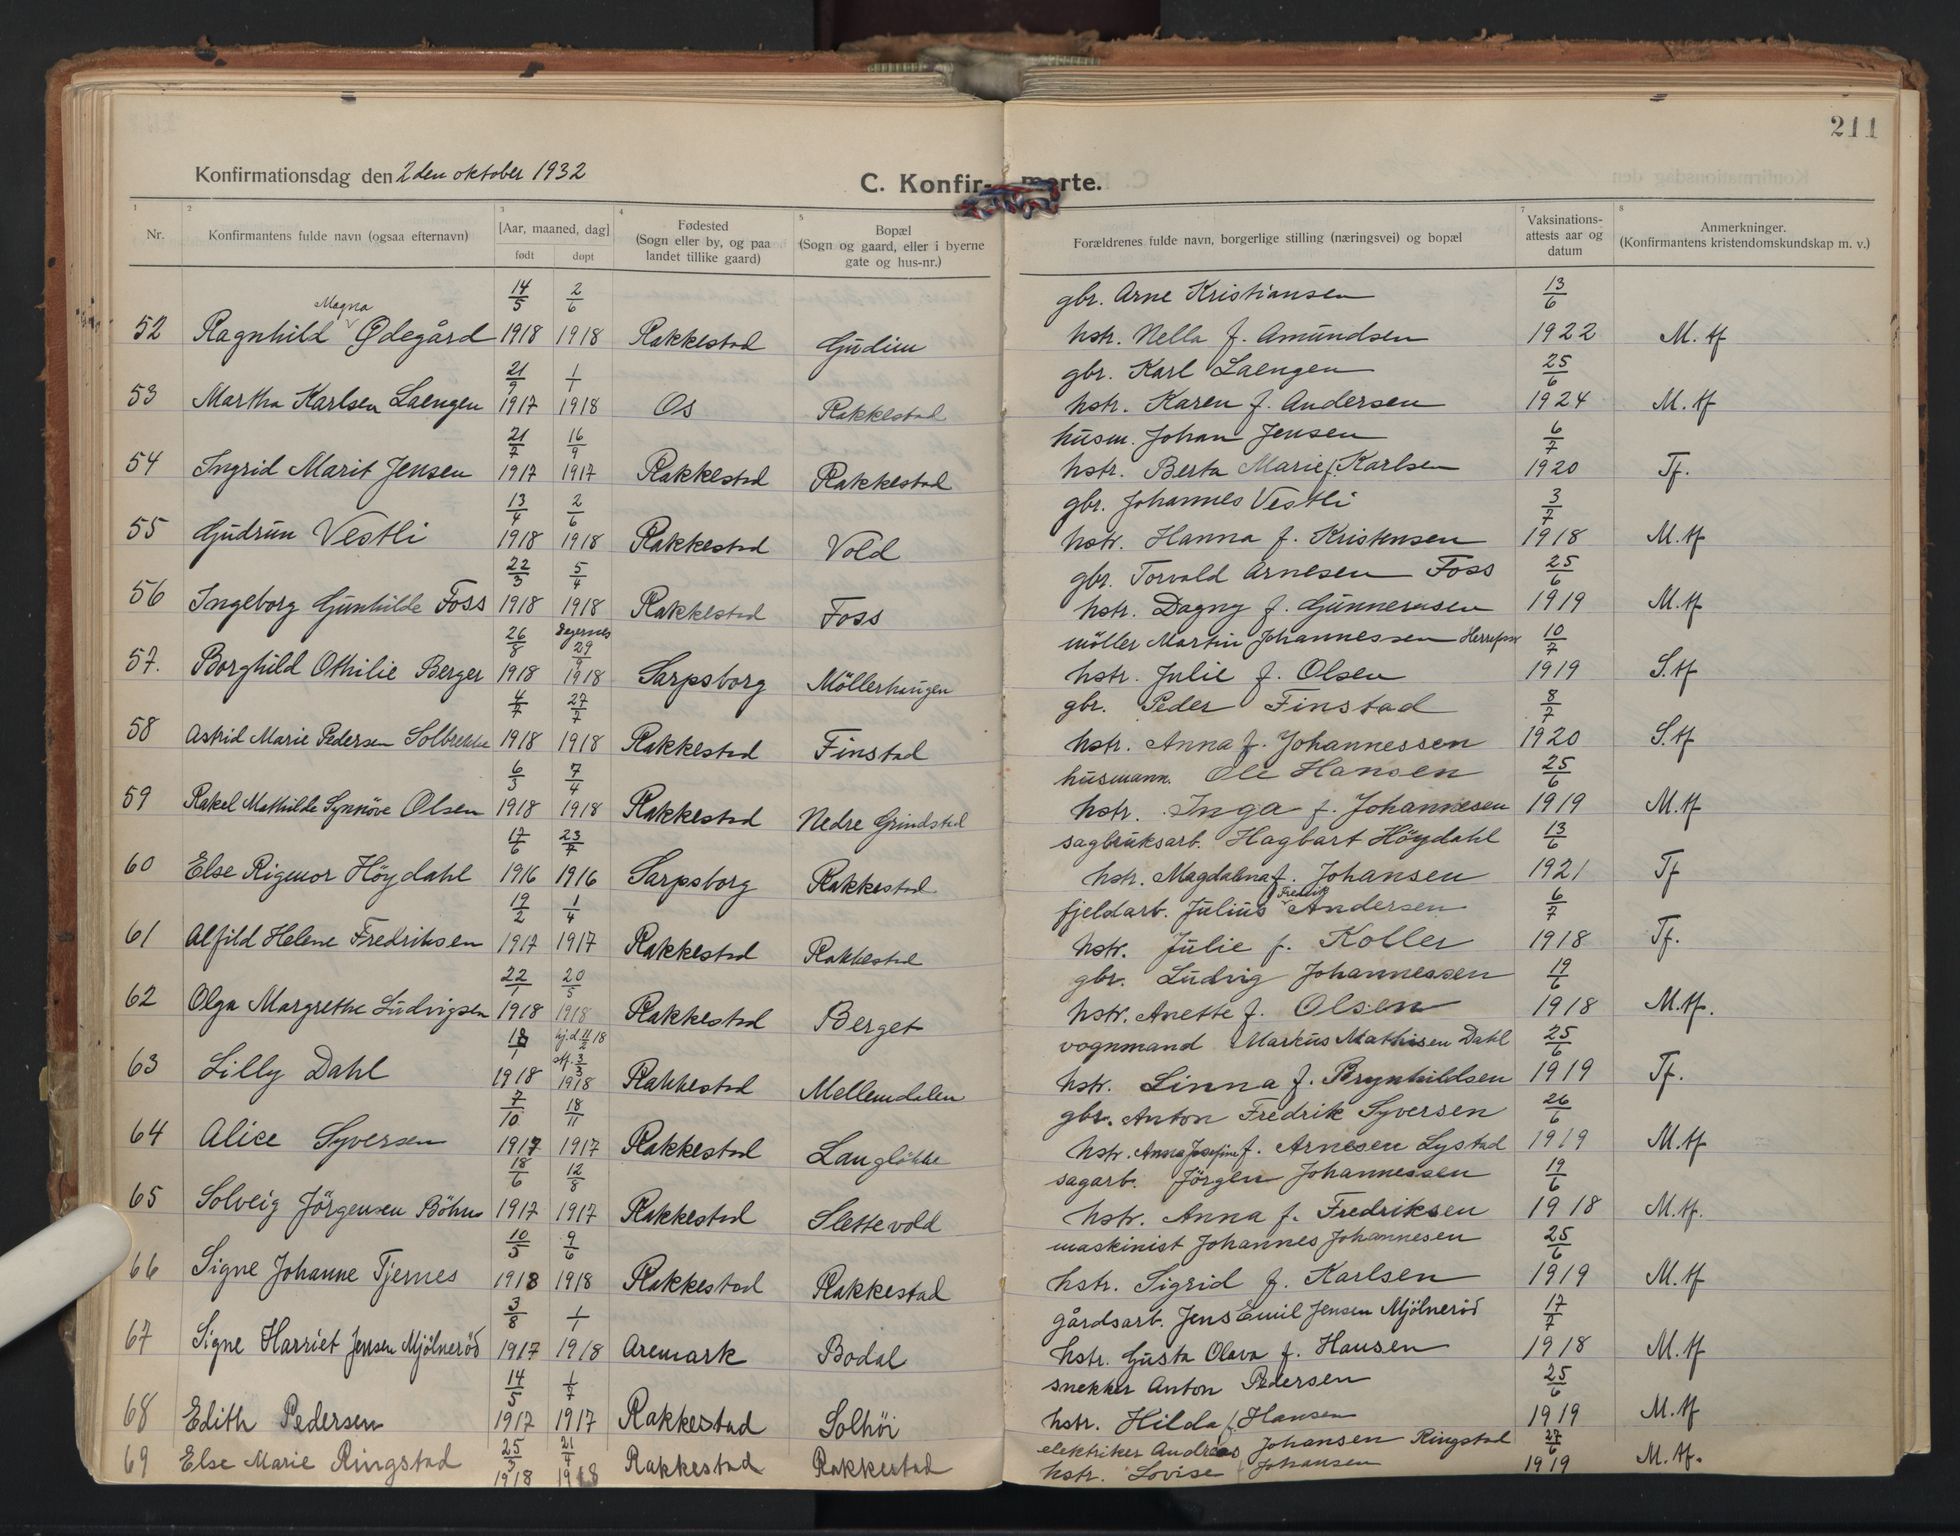 211
Konfirmationsdag den 2 den oktober 1932
C. Konfir- merte.
1 2 3 4 5 7 8
Nr. Konfirmantens fulde navn (ogsaa efternavn) [Aar, maaned, dag] født døpt Fødested (Sogn eller by, og paa landet tillike gaard) Bopæl (Sogn og gaard, eller i byerne gate og hus-nr.) Forældrenes fulde navn, borgerlige stilling (næringsvei) og bopæl Vaksinations-attests aar og datum Anmerkninger. (Konfirmantens kristendomskundskap m. v.)
Magna 14/5 2/6 gbr. Arne Kristiansen 13/6
52 Ragnhild Ødegård 1918 1918 Rakkestad Gudim hstr. Nella f. Amundsen 1922 M. tf
21/9 1/1 gbr. Karl Laengen 25/6
53 Martha Karlsen Laengen 1917 1918 Os Rakkestad hstr. Karen f. Andersen 1924 M. tf
21/7 16/9 husm. Johan Jensen 6/7
54 Ingrid Marit Jensen 1917 1917 Rakkestad Rakkestad hstr. Berta Marie f. Karlsen 1920 Tf.
13/4 2/6 gbr. Johannes Vestli 3/7
55 Gudrun Vestli 1918 1918 Rakkestad Vold hstr. Hanna f. Kristensen 1918 M. tf
22/3 5/4 gbr. Torvald Arnesen Foss 25/6
56 Ingeborg Gunhilde Foss 1918 1918 Rakkestad Foss hstr. Dagny f. Gunnersen 1919 M. tf
26/8 Degernes 29/9 möller Martin Johannessen 10/7
57. Borghild Othilie Berger 1918 1918 Sarpsborg Möllerhaugen hstr. Julie f. Olsen 1919 S. tf
4/7 27/7 gbr. Peder Finstad 8/7
58 Astrid Marie Pedersen Solbrekke 1918 1918 Rakkestad Finstad hstr. Anna f. Johannessen 1920 S. tf
6/3 7/4 husmann. Ole Hansen 25/6
59 Rakel Mathilde Synnöve Olsen 1918 1918 Rakkestad Nedre Grindstad hstr. Inga f. Johannesen 1919 M. tf
17/6 23/7 sagbruksarb. Hagbart Höydahl 13/6
60 Else Rigmor Höydahl 1916 1916 Sarpsborg Rakkestad hstr. Magdalena f. Johansen 1921 Tf
19/2 1/4 fjeldarb. Julius Fredrik Andersen 6/7
61 Alfild Helene Fredriksen 1917 1917 Rakkestad Rakkestad hstr. Julie f. Koller 1918 Tf.
22/1 20/5 gbr. Ludvig Johannessen 19/6
62 Olga Margrethe Ludvigsen 1918 1918 Rakkestad Berget hstr. Anette f. Olsen 1918 M. tf.
18/1 hj.d. 11/2 18 vognmand Markus Mathisen Dahl 25/6
63 Lilly Dahl 1918 stf. 3/3 1918 Rakkestad Mellemdalen hstr. Linna f. Brynhildsen 1919 Tf.
7/10 18/11 gbr. Anton Fredrik Syversen 26/6
64 Alice Syversen 1917 1917 Rakkestad Langlökke hstr. Anna Josefine f. Arnesen Lystad 1919 M. tf
18/6 12/8 sagarb. Jörgen Johannessen 19/6
65 Solveig Jörgensen Böhn 1917 1917 Rakkestad Slettevold hstr. Anna f. Fredriksen 1918 M. tf.
10/5 9/6 maskinist Johannes Johannesen 25/6
66 Signe Johanne Tjernes 1918 1918 Rakkestad Rakkestad hstr. Sigrid f. Karlsen 1919 M. tf
3/8 1/1 gårdsarb. Jens Emil Jensen Mjölneröd 17/7
67 Signe Harriet Jensen Mjölneröd 1917 1918 Aremark Bodal hstr. Gusta Olava f. Hansen 1918 M. tf
14/5 1/7 snekker Anton Pedersen 25/6
68 Edith Pedersen 1917 1917 Rakkestad Solhöi hstr. Hilda f. Hansen 1919 M. tf
25/5 21/7 elektriker Andreas Johansen Ringstad 27/6
69 Else Marie Ringstad 1918 1918 Rakkestad Rakkestad hstr. Lovise f. Johansen 1919 M. tf.